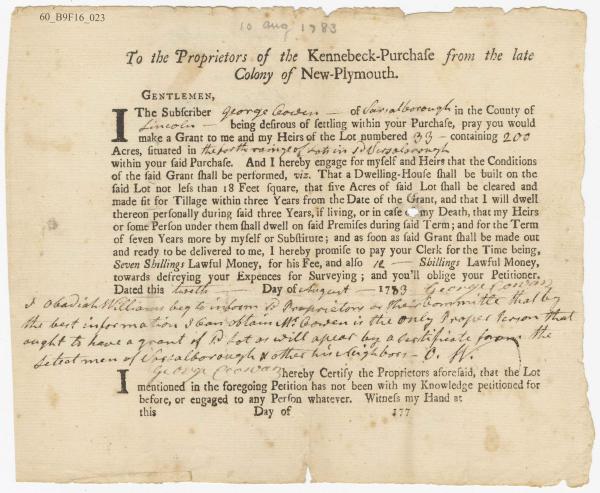 60_B9F16_023
10 aug 1783
To the Proprietors of the Kennebeck-Purchase from the late
Colony of New-Plymouth.
GENTLEMEN,
I The Subscriber George Cowen of Vassalborough in the County of
Lincoln being desirous of settling within your Purchase, pray you would
make a Grant to me and my Heirs of the Lot numbered 33 containing 200
Acres, situated in the range of Lots in sd Vassalborough
within your said Purchase. And I hereby engage for myself and Heirs that the Conditions
of the said Grant shall be performed, viz. That a Dwelling-House shall be built on the
said Lot not less than 18 Feet square, that five Acres of said Lot shall be cleared and
made fit for Tillage within three Years from the Date of the Grant, and that I will dwell
thereon personally during said three Years, if living, or in case of my Death, that my Heirs
or some Person under them shall dwell on said Premises during said Term; and for the Term
of seven Years more by myself or Substitute; and as soon as said Grant shall be made out
and ready to be delivered to me, I hereby promise to pay your Clerk for the Time being,
Seven Shillings Lawful Money, for his Fee, and also Shillings Lawful Money,
towards defreying your Expences for Surveying; and you'll oblige your Petitioner.
Dated this twelth Day of August 1783 George Cowan
I Obadiah Williams beg to inform sd Proprietors or their Committee that by
the best information I can obtain Mr Cowen is the only Proper Person that
ought to have a grant of sd Lot as will apear by a Certificate from the
Selectmen of Vassalborough & other his Neighbors O. W.
George Cowan
I hereby Certify the Proprietors aforesaid, that the Lot
mentioned in the foregoing Petition has not been with my Knowledge petitioned for
before, or engaged to any Person whatever. Witness my Hand at
this Day of 177